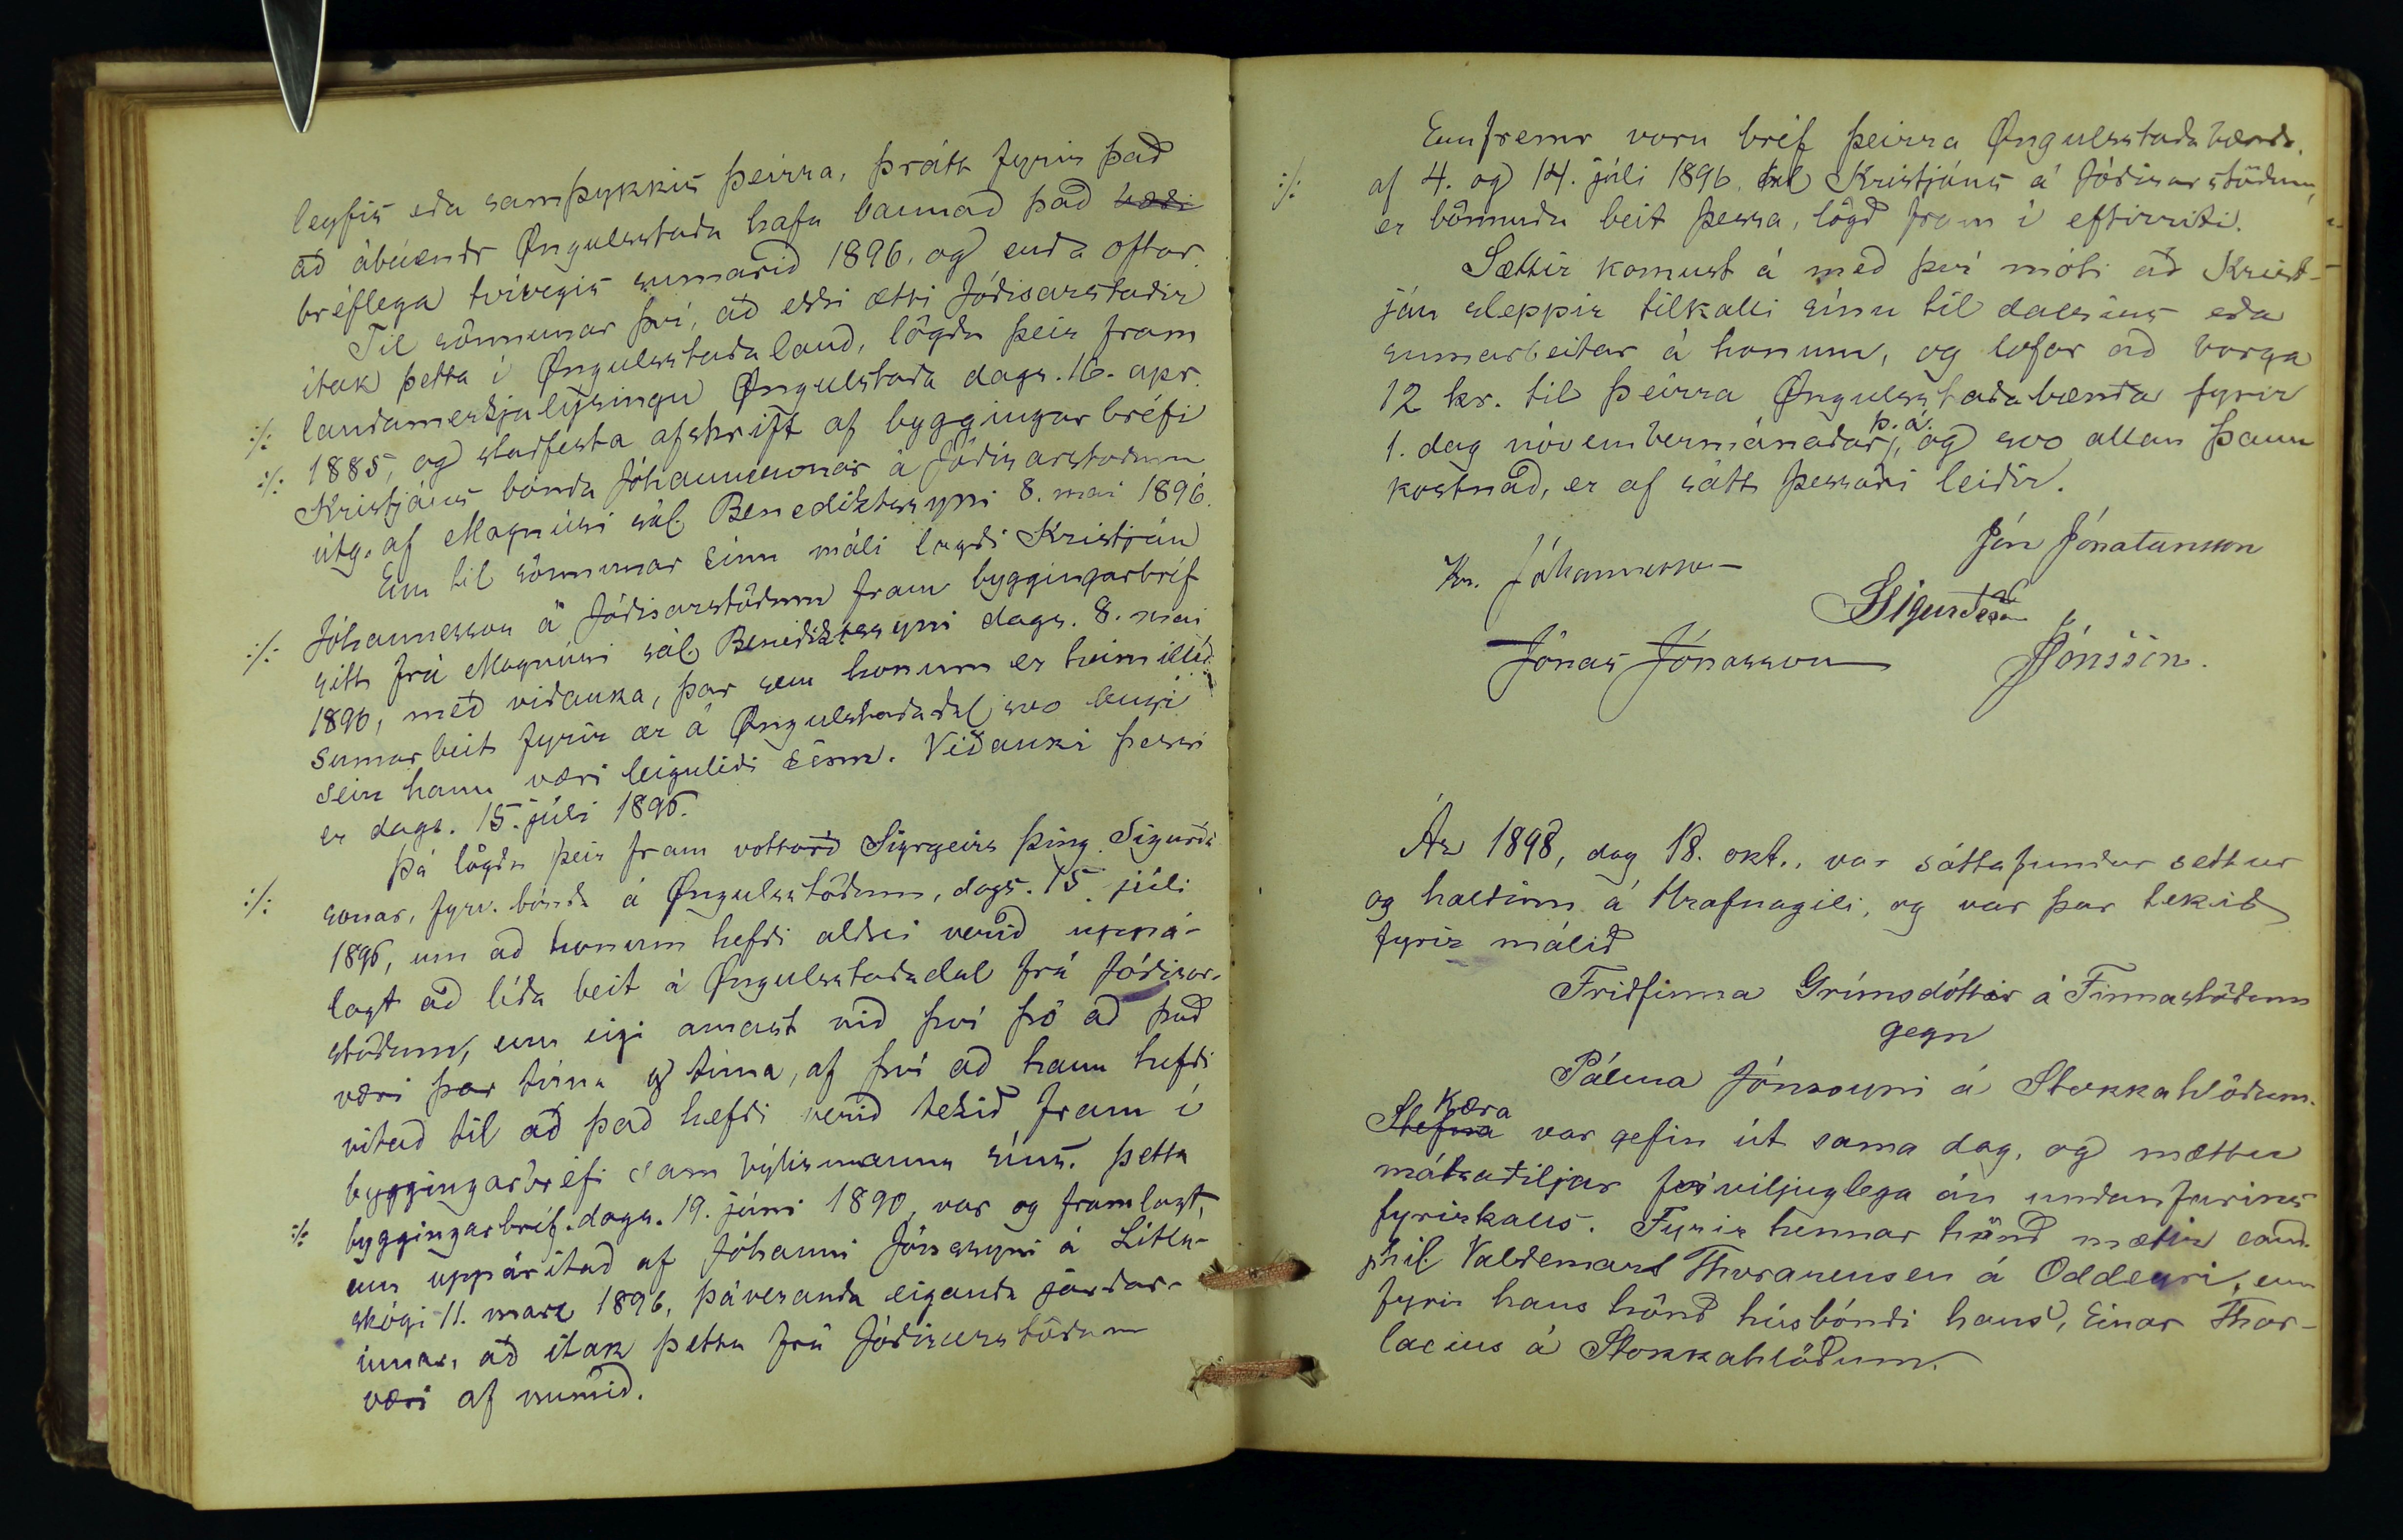 leyfis eða samþykkis þeirra, þrátt fyrir það
að ábúendr Öngulsstaða hafa bannað það bæði
bréflega tvívegis sumarið 1896, og enda oftar.
Til sönnunar því, að ekki ætti Jódisarstaðir
ítak þetta í Öngulsstaðaland, lögðu þeir fram
:/: landamerkjalýsingu Öngulstaða dags. 16. apr.
:/: 1885, og staðfesta afskrift af byggingarbréfi
Kristjáns bónda Jóhannessonar á Jódisarstöðum
útg. af Magnúsi sál. Benediktssyni 8. mai 1896.
En til sönnunar sinu máli lagði Kristján
:/: Jóhannesson á Jódisarstöðum fram byggingarbréf
sitt frá Magnúsi sál. Benediktssyni dags. 8. mai
1896, með viðauka, þar sem honum er heimiluð
sumarbeit fyrir ær á Öngulstaðadal svo lengi
sem hann væri leiguliði sinn. Viðauki þessi
er dags. 15. júli 1896.
Þá lögðu þeir fram vottorð Sigrgeirs þing. Sigurðs
:/: sonar, fyrv. bónda á Öngulsstöðum, dags. 15. júli
1896, um að honum hefði aldrei verið uppá-
lagt að líða beit á Öngulsstaðadal frá Jódisar-
stöðum, enn eigi amast við því þó að það
væri þar tima og tima, af því að hann hefði
vitað til að það hefði verið tekið fram í
byggingarbréfi sambýlismanns síns. Þetta
:/: byggingarbréf dags. 19. júni 1890, var og framlagt,
enn uppáritað af Jóhanni Jónssyni á Litla-
skógi 11. marz 1896, þáveranda eiganda jarðar-
innar, að ítak þetta frá Jódisarstöðum
væri af numið.
Ennfremr voru bréf þeirra Öngulsstaðabænda
:/: af 4. og 14. júli 1896, til Kristjáns á Jódisarstöðum,
er bönnuðu beit þessa, lögð fram í eftirriti.
Sættir komust á með því móti að Krist-
ján sleppir tilkalli sínu til dalsins eða
sumarbeitar á honum, og lofar að borga
12 kr. til þeirra Öngulsstaðabænda fyrir
1. dag nóvembermánaðar þ. á., og svo allan þann
kostnað, er af sátt þessari leiðir.
Jón Jónatansson
Kr. Jóhannesson
Sigurðr
Jónas Jónasson Jónsson.
Ár 1898, dag 18. okt., var sáttafundur settur
og haldinn á Hrafnagili, og var þar tekið
fyrir málið
Friðfinna Grímsdóttir á Finnastöðum
gegn
Pálma Jónssyni á Stokkahlöðum.
Kæra
Stefna var gefin út sama dag, og mættu
málsaðiljar frívíljuglega án undanfarins
fyrirkalls. Fyrir hennar hönd mætir cand.
phil. Valdemar Thorarensen á Oddeyri, enn
fyrir hans hönd húsbóndi hans, Einar Thor-
lacius á Stokkahlöðum.